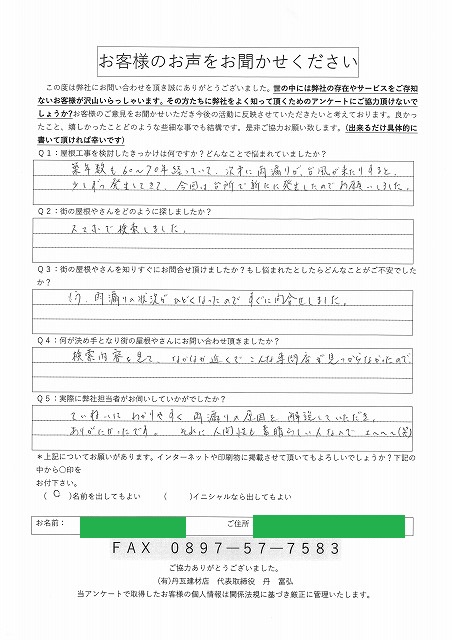 お客様のお声をお聞かせください
この度は弊社にお問い合わせを頂き誠にありがとうございました。世の中には弊社の存在やサービスをご存知
ないお客様が沢山いらっしゃいます。その方たちに弊社をよく知って頂くためのアンケートにご協力頂けないで
しょうか?お客様のご意見をお聞かせいただき今後の活動に反映させていただきたいと考えております。良かっ
たこと、嬉しかったことどのような些細な事でも結構です。是非ご協力お願い致します。(出来るだけ具体的に
書いて頂ければ幸いです)
Q1：屋根工事を検討したきっかけは何ですか？どんなことで悩まれていましたか？
築年数も60〜70年経っていて、次第に雨漏りが、台風が来たりすると、
少しずつ発生してきて、今回は台所で新たに発生したのでお願いしました。
Q2：街の屋根やさんをどのように探しましたか？
スマホで検索しました。
Q3：街の屋根やさんを知りすぐにお問合せ頂けましたか？もし悩まれたとしたらどんなことがご不安でした
か？
もう、雨漏りの状況がひどくなったのですぐに問合せしました。
Q4：何が決め手となり街の屋根やさんにお問い合わせ頂きましたか？
検索内容を見て、なかなか近くでこんな専門店が見つからなかったので
Q5：実際に弊社担当者がお伺いしていかがでしたか？
てい寧いに わかりやすく 雨漏りの原因を 解説していただき、
ありがたかったです。 それに人間性も素晴らしい人なので
＊上記についてお願いがあります。インターネットや印刷物に掲載させて頂いてもよろしいでしょうか？下記の
中から○印を
お付下さい。
(○)名前を出してもよい (　)イニシャルなら出してもよい
お名前： ご住所
FAX 0897ー57ー7583
ご協力ありがとうございました。
(有)丹瓦建材店 代表取締役 丹 富弘
当アンケートで取得したお客様の個人情報は関係法規に基づき厳正に管理いたします。